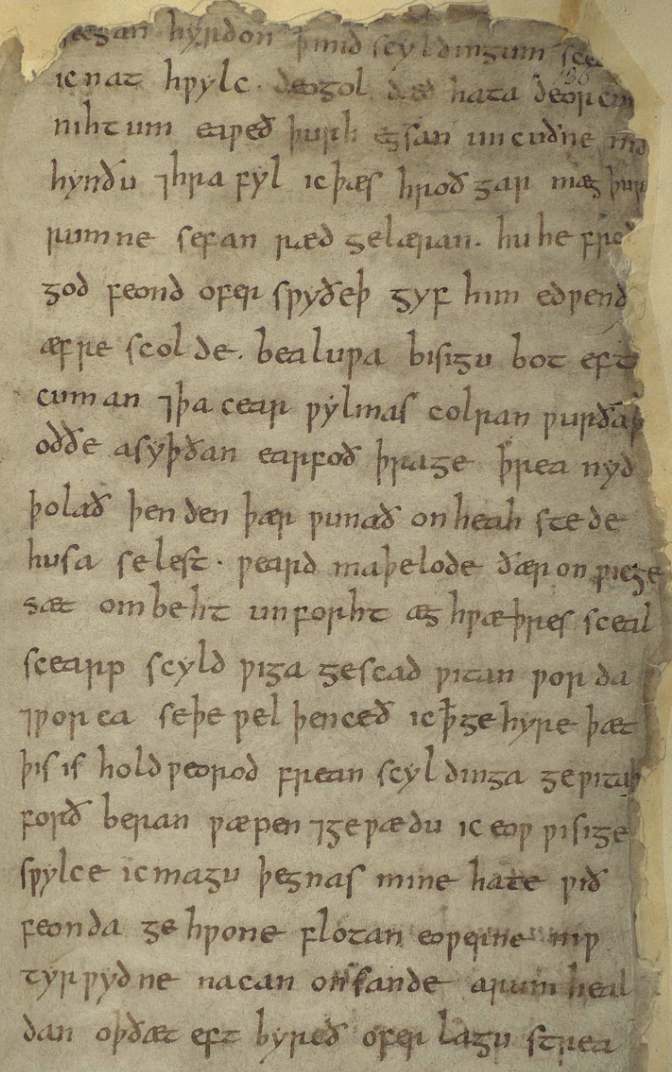 secgan hyrdon ꝥ mid scyldingum sce
ic nat hƿylc · deogol dæd hata deorcum
nihtum eaƿeð þurh egsan uncuðne
hynðu ⁊hra fyl ic þæs hroð gar mæg þur
rumne sefan ræd gelæran · hu he frod
god feond ofer sƿyðeþ gyf him edƿend
æfre scol de · bealuƿa bisigu bot eft
cuman ⁊þa cear ƿylmas colran ƿurðaþ
oððe asyþðan earfoð þrage þrea nyd
þolað þen den þær ƿunað on heah ste de
husa selest · ƿeard maþelode ðær on ƿicge
sæt ombeht unforht æg hƿæþres sceal
scearp scyld ƿiga gescad ƿitan ƿor da
⁊ƿor ca seþe ƿel þenceð ic ꝥ ge hyre þæt
þis is hold ƿeorod frean scyl dinga geƿitaþ
forð beran ƿæpen ⁊ge ƿædu ic eoƿ ƿisige
sƿylce ic magu þegnas mine hate ƿið
feonda ge hƿone flotan eoƿerne niƿ
tyr ƿyd ne nacan on sande arum heal
dan oþðæt eft byreð ofer lagu strea